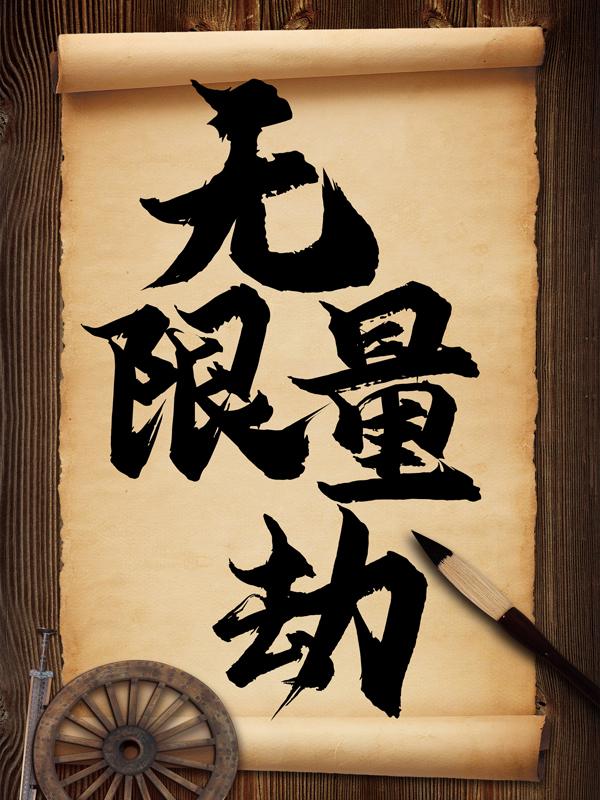 无
限量
劫